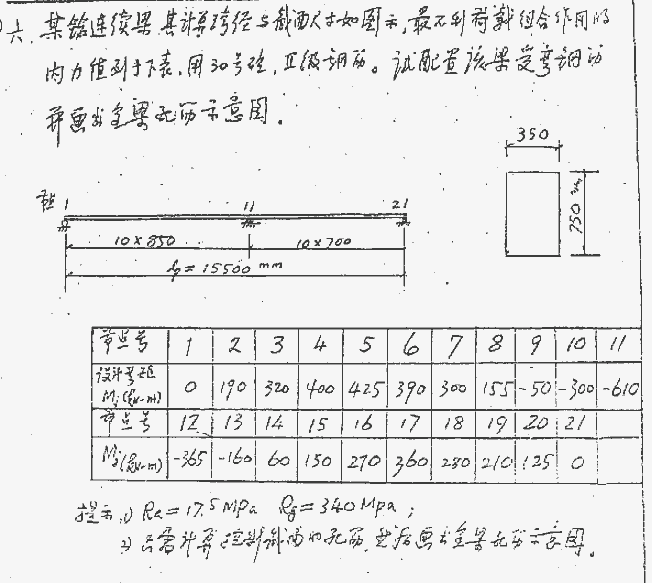 六. 某钢连续梁其计算跨径与截面尺寸如图示,最不利荷载组合作用的
内力值列于下表,用30号砼,Ⅱ级钢筋。试配置该梁受弯钢筋
并画出全梁配筋示意图。
350
1 11 21
750 mm
10×850 10×700
lp=15500 mm
节点号 1 2 3 4 5 6 7 8 9 10 11
设计弯矩 Mj(kN-m) 0 190 320 400 425 390 300 155 -50 -300 -610
节点号 12 13 14 15 16 17 18 19 20 21
Mj(kN-m) -365 -160 60 150 270 360 280 210 125 0
提示:1) Ra=17.5MPa Rg=340MPa;
2) 只需计算控制截面的配筋,然后画出全梁配筋示意图。